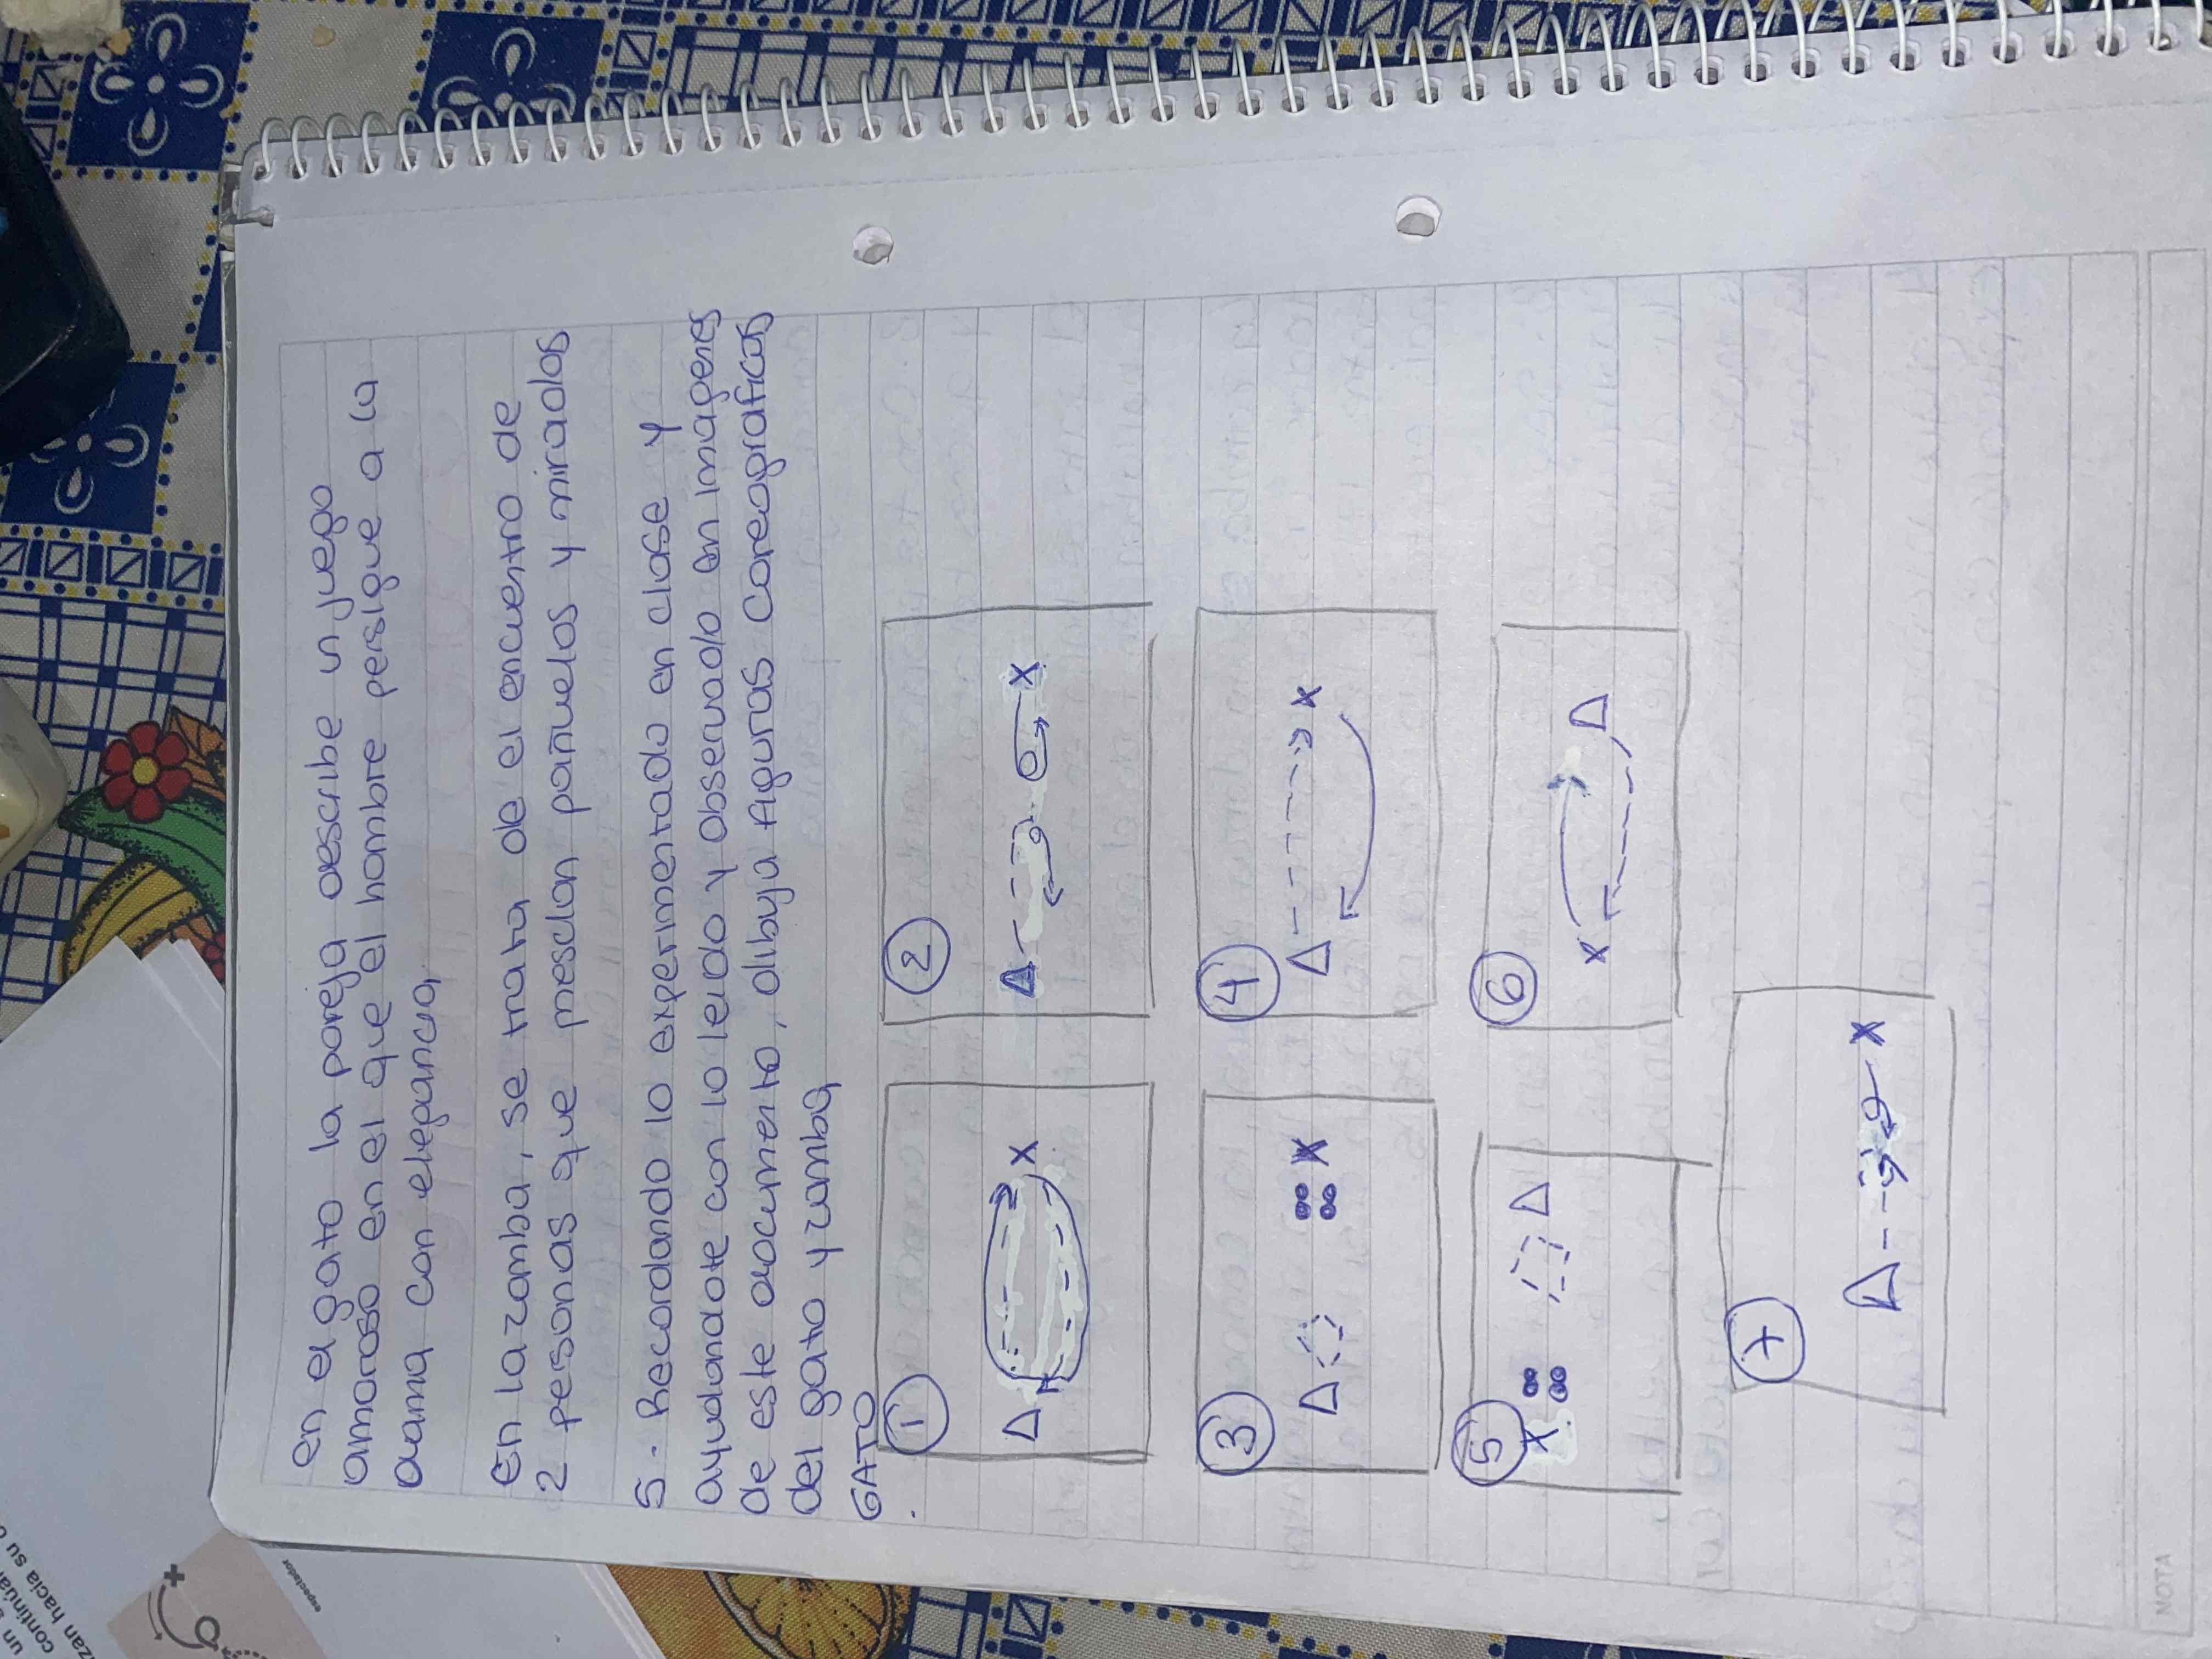 en el gato la pareja describe un juego
amoroso en el que el hombre persigue a la
dama con elegancia
En la zamba, se trata de el encuentro de
2 personas que mesclan pañuelos y miradas
5. Recordando lo experimentado en clase y
ayudandote con lo leido y observado en imagenes
de este documento, dibuja figuras coreograficas
del gato y zamba
GATO
1
2
3
4
5
6
7
X
X
X
X
X
X
X
NOTA
espectador
un
continúa
zan hacia su